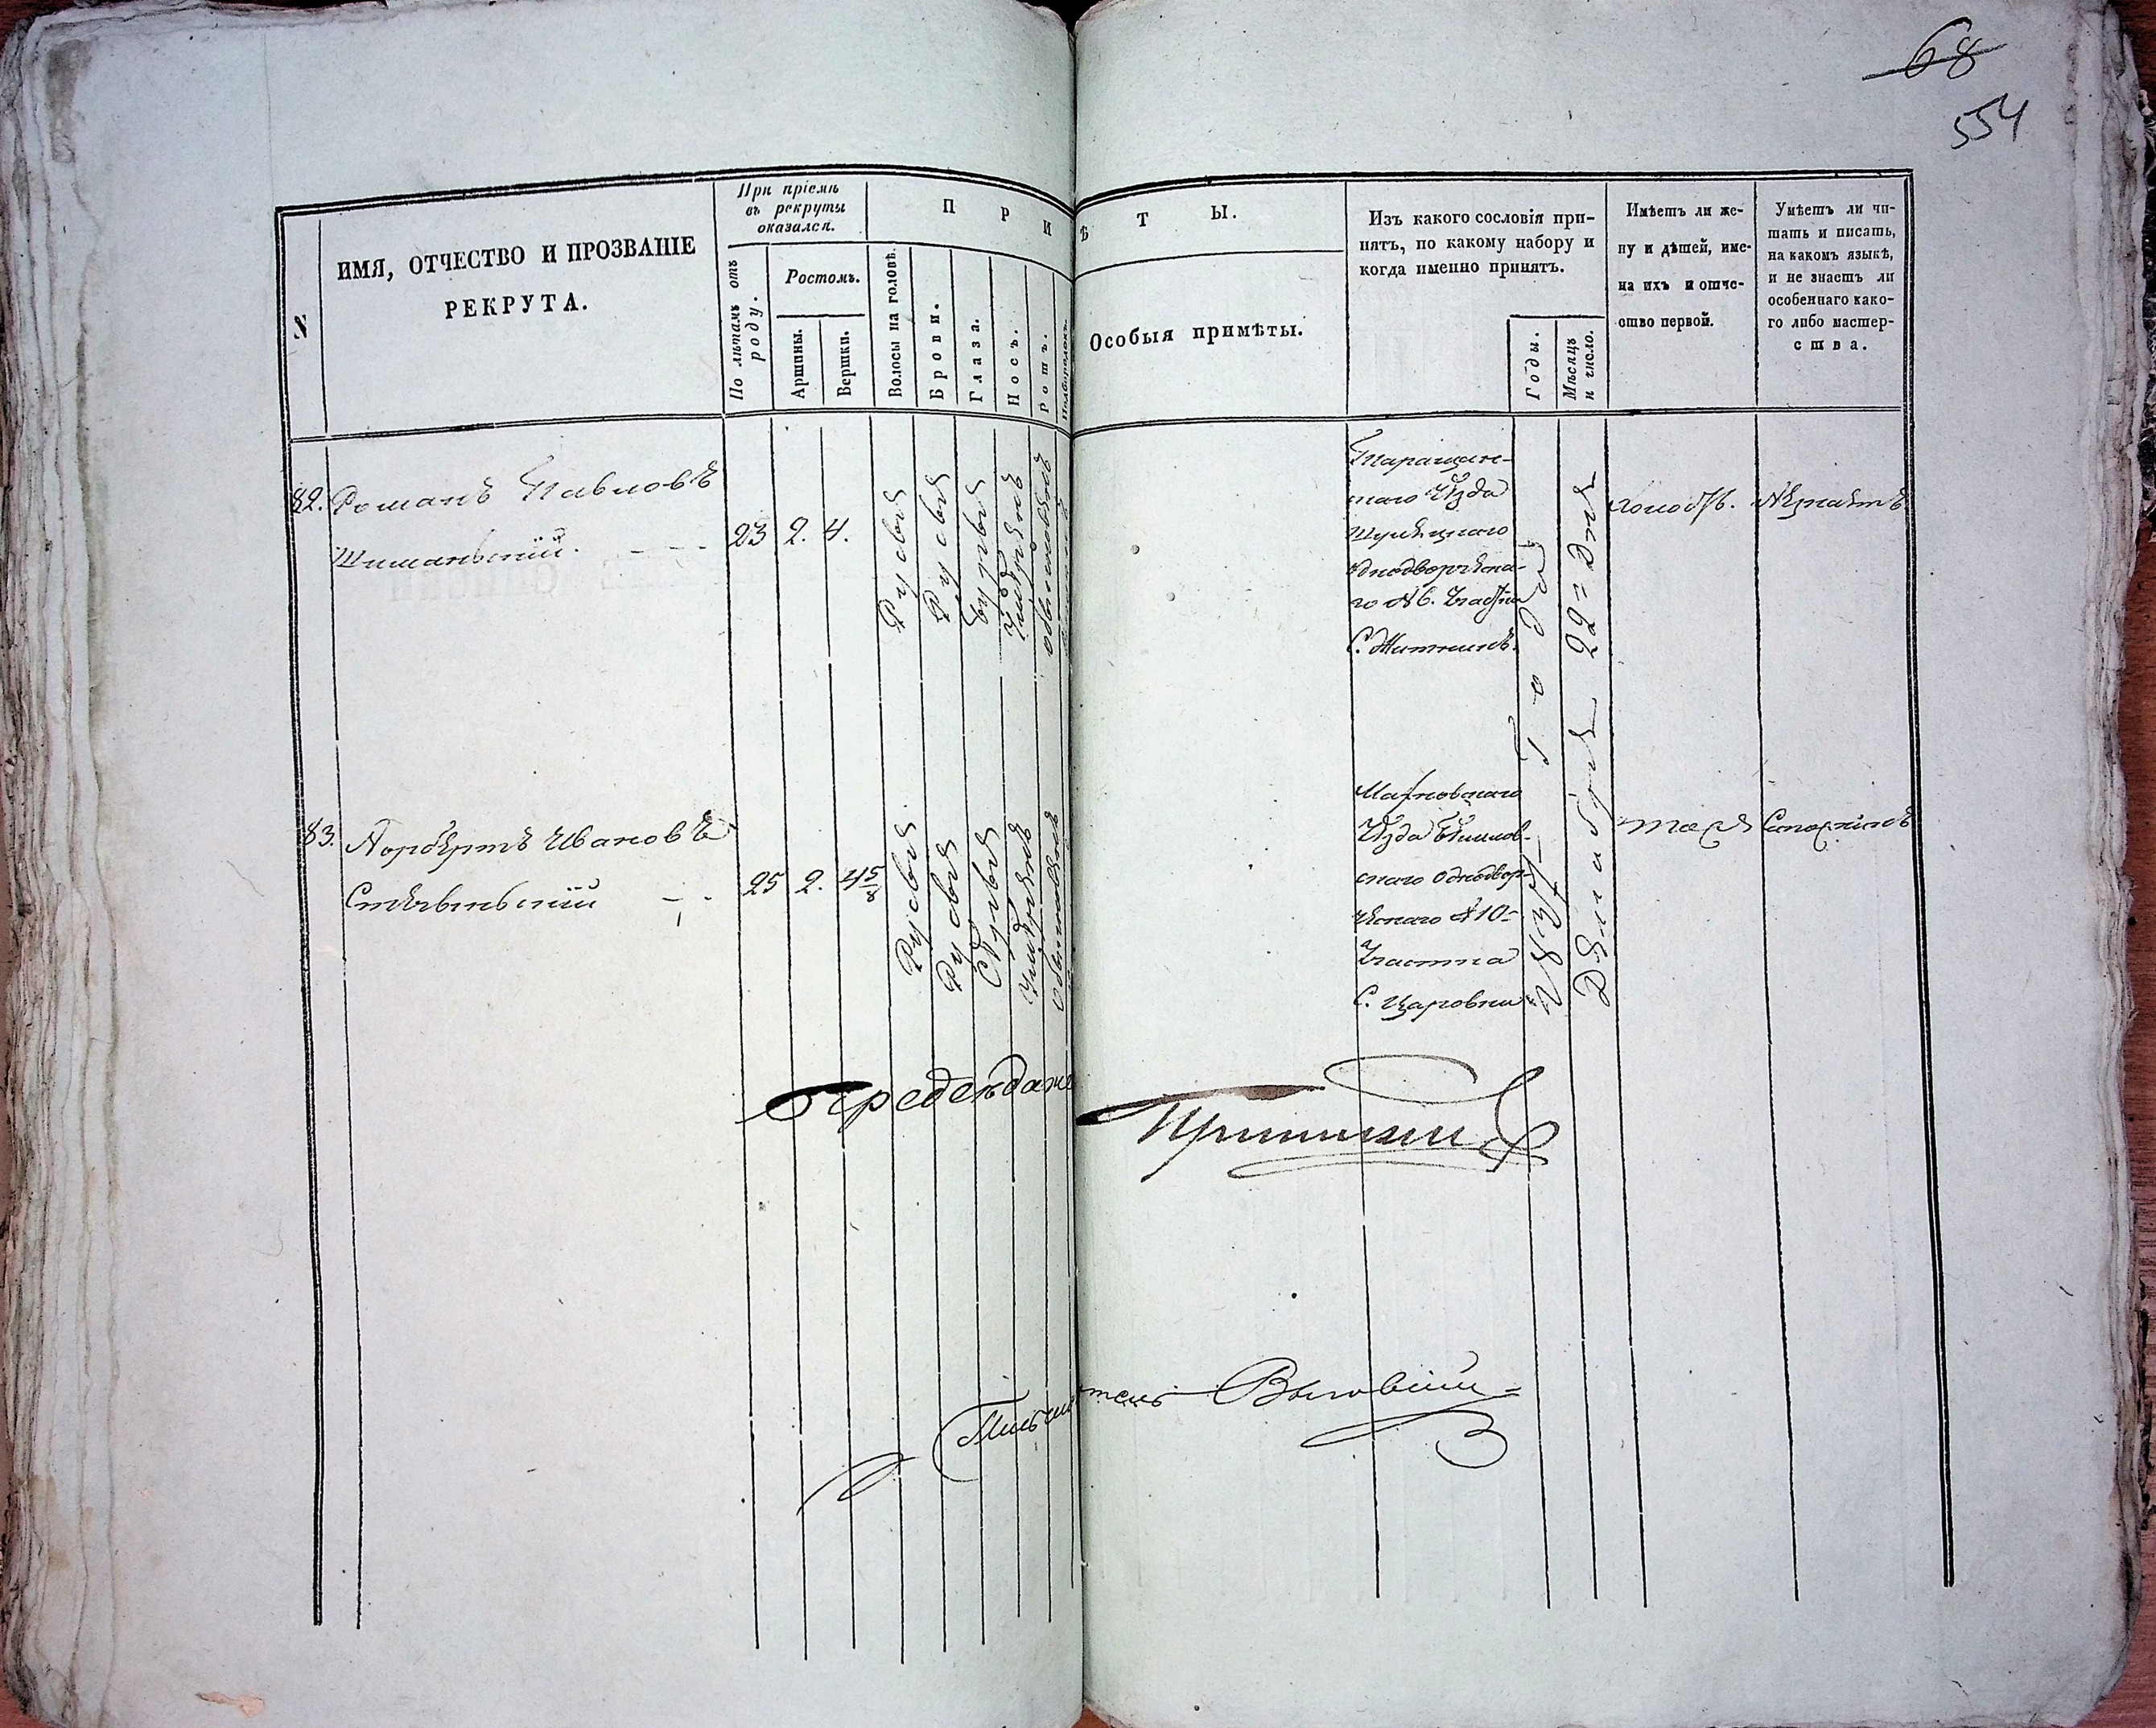 68
554
N
ИМЯ, ОТЧЕСТВО И ПРОЗВАНІЕ
РЕКРУТА.
При пріемѣ
въ рекруты
оказался.
По лѣтамъ отъ
роду.
Ростомъ.
Аршины.
Вершки.
П Р И
Волосы на головѣ.
Брови.
Глаза.
Носъ.
Ротъ.
Подбородокъ.
Ѣ Т Ы.
Особыя примѣты.
Изъ какого сословія при-
нятъ, по какому набору и
когда именно принятъ.
Годы.
Мѣсяцъ
и число.
Имѣетъ ли же-
ну и дѣтей, име-
на ихъ и отче-
ство первой.
Умѣетъ ли чи-
тать и писать,
на какомъ языкѣ,
и не знаетъ ли
особеннаго како-
го либо мастер-
ства.
82.
Романъ Павловъ
23
2.
4.
Русыя
Русыя
Носъ умѣренъ
обыкновенъ
Таращан-
скаго Уѣзда
однодворческа-
го №6. Участка
С. Житники.
холостъ.
Незнаетъ
83.
Норбертъ Ивановъ
25
2.
4 5/8
Русыя
Русыя
Сѣрыя
умѣренъ
обыкновенъ
Махновскаго
Уѣзда
скаго однодвор-
ческаго №10-
Участка
С. Царовки
1837 года
Декабря 22= дня
тоже
Сапожникъ
Предсѣдатель
Письмоводитель Выговскій